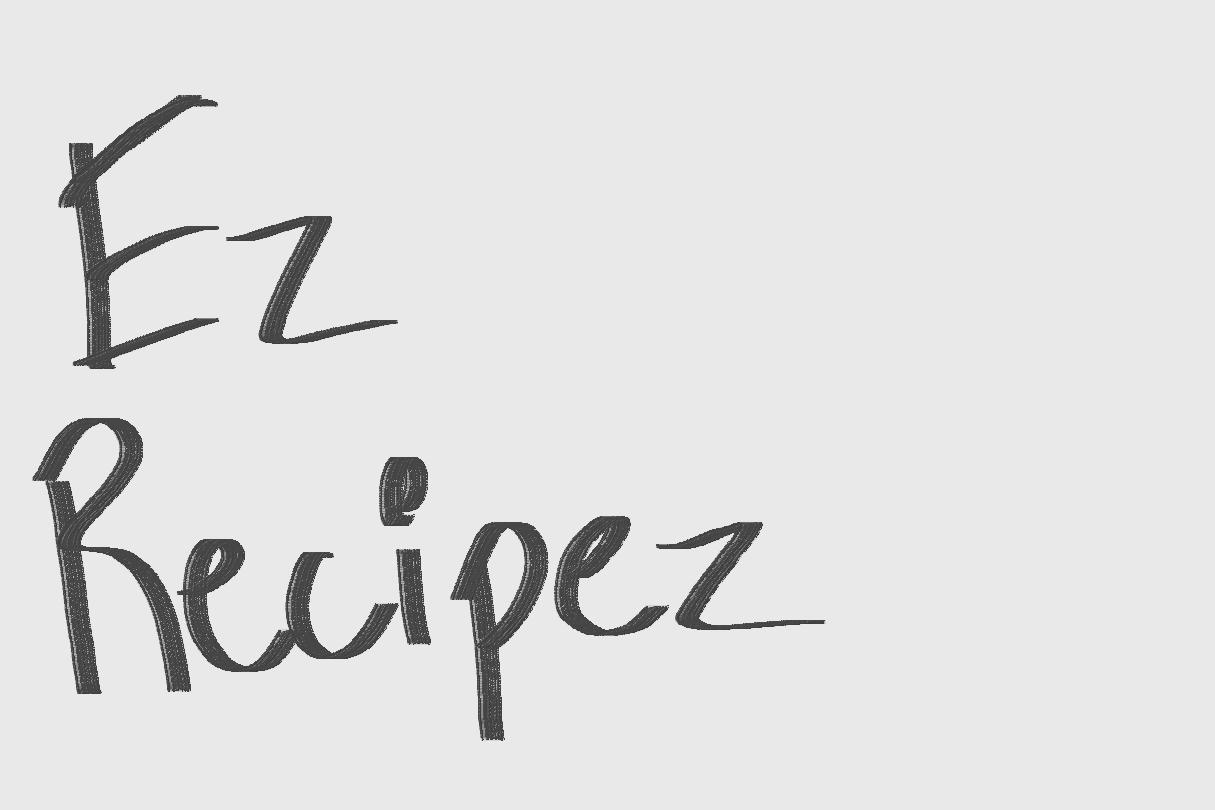 Ez
Recipez